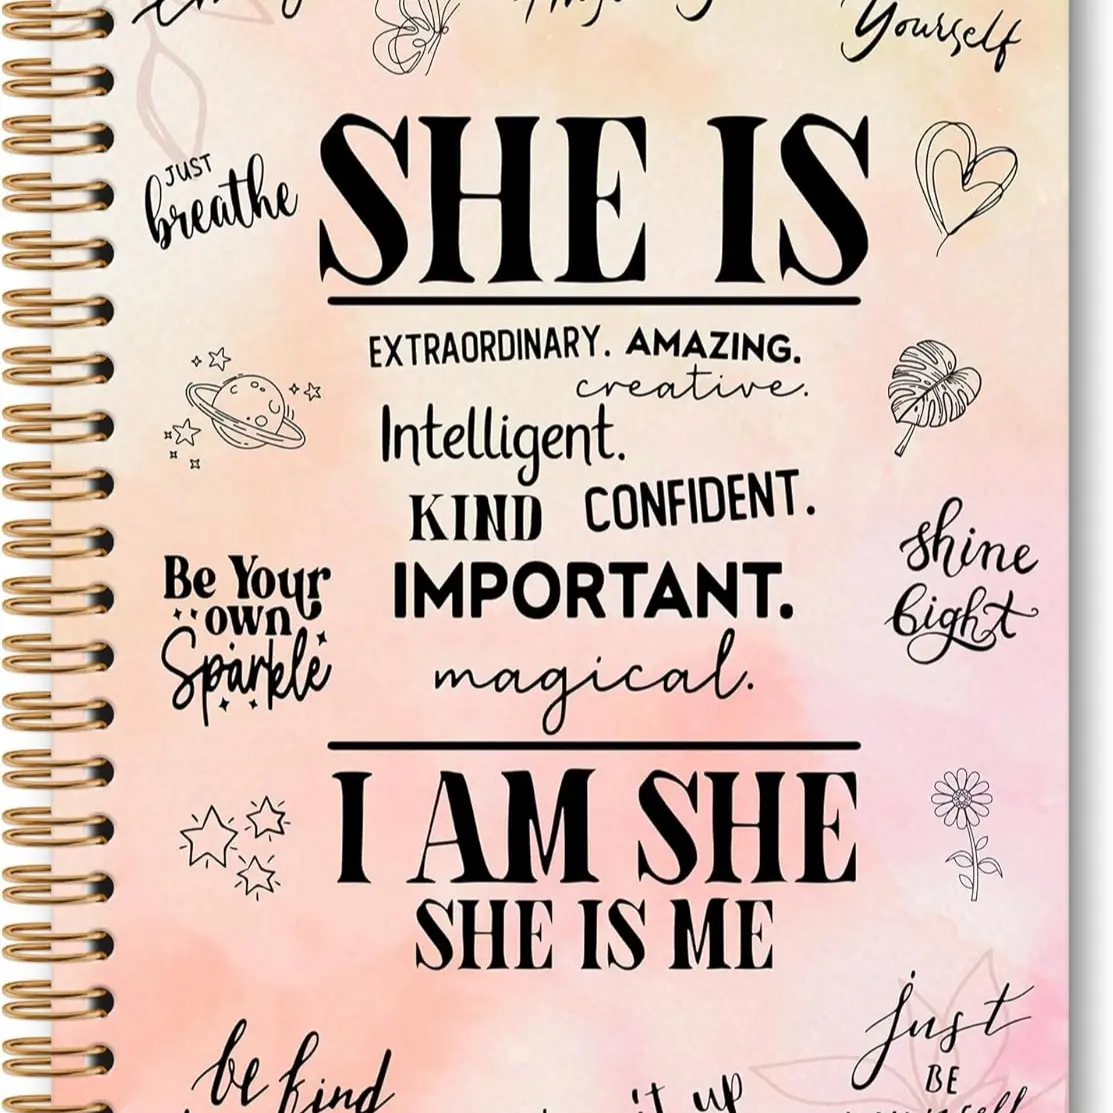 Yourself
JUST
breathe
SHE IS
EXTRAORDINARY. AMAZING.
creative.
Intelligent.
KIND CONFIDENT.
IMPORTANT.
magical.
Be Your
own
Sparkle
shine
bight
I AM SHE
SHE IS ME
be kind
just
BE
it up